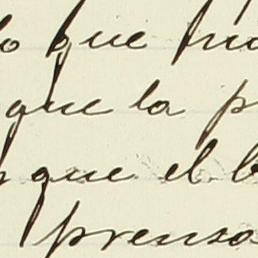 lo que
que la
que el
prensa